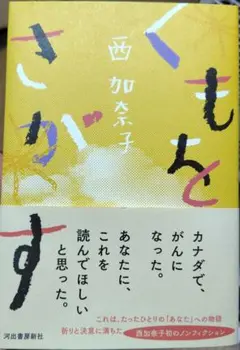 くもを
さがす
西加奈子
カナダで、
がんに
なった。
あなたに、
これを
読んでほしい
と思った。
これは、たったひとりの「あなた」への物語
祈りと決意に満ちた
西加奈子初のノンフィクション
河出書房新社